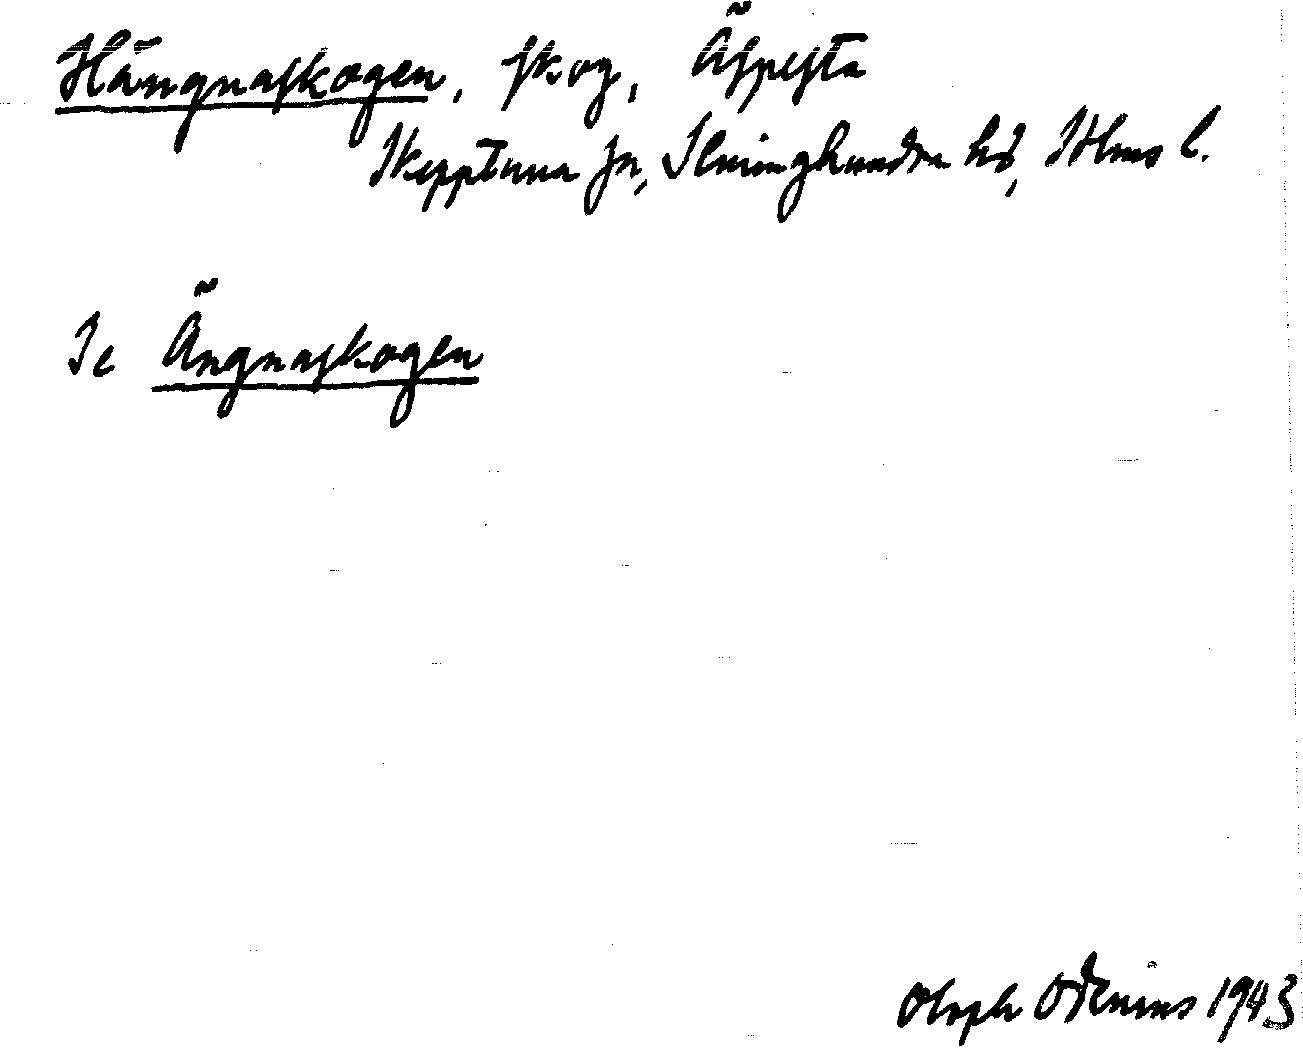 Hängnaskogen, skog, Äspesta
Skepptuna sn, Seminghundra hd, Sthms l.
Se Ängnaskogen
Oloph Odenius 1943